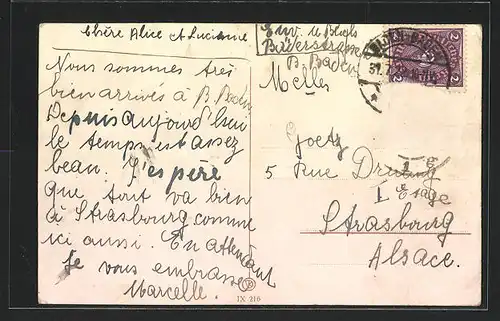 Chère Alice et Lucienne
Nous sommes très
bien arrivés à B. Baden
Depuis aujourd'hui
le temps est assez
beau. J'espère
que tout va bien
à Strasbourg comme
ici aussi. En attendant
je vous embrasse
Marcelle.
Env. u Blochs
Bäderstrasse
B. Baden
Melles
Goetz
5 Rue
I Etage
Strasbourg
Alsace.
2 2
IX 216